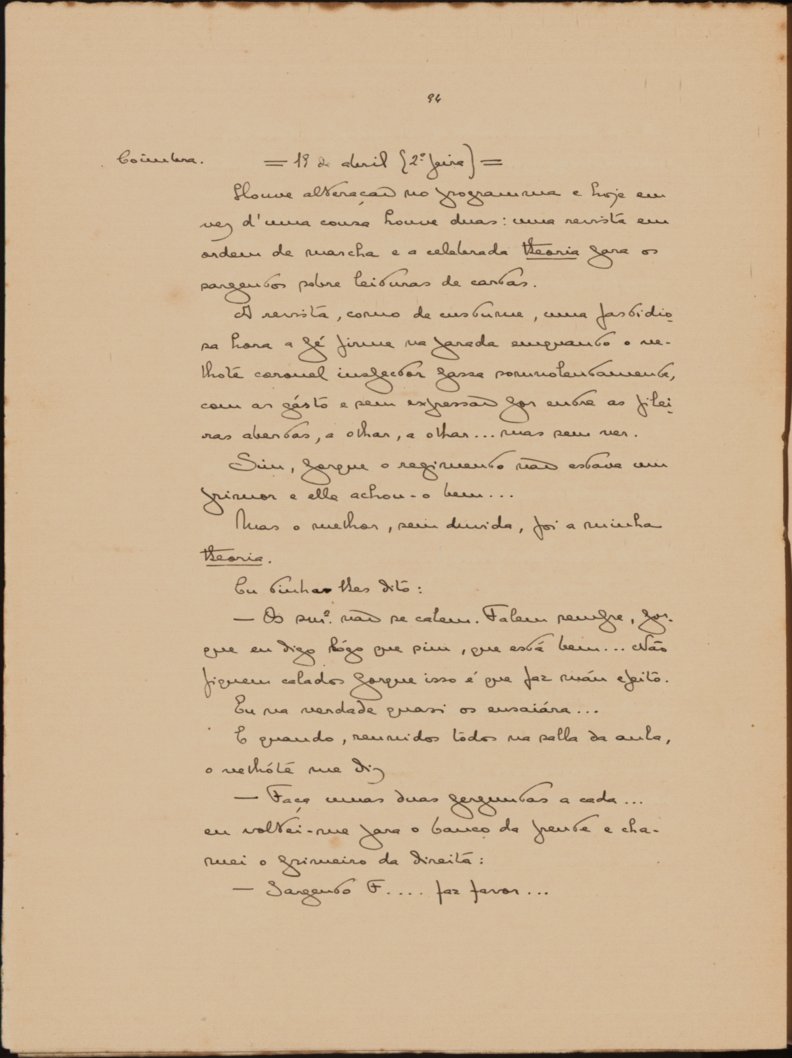 94
Coimbra.
= 19 de abril (2ª feira) =
Houve alteração no programma e hoje em
vez d'uma cousa houve duas: uma revista em
ordem de marcha e a celebrada theoria para os
sargentos sobre leituras de cartas.
A revista, como de custume, uma fastidio-
sa hora a pé firme na parada emquanto o ve-
lhote coronel inspector passa somnolentamente,
com ar gásto e sem expressão por entre as filei-
ras abertas, a olhar, a olhar... mas sem ver.
Sim, porque o regimento não estava um
primor e elle achou-o bem...
Mas o melhor, sem duvida, foi a minha
theoria.
Eu tinha lhes dito:
— Os snrs. não se calem. Falem sempre, por-
que eu digo lógo que sim, que está bem... Não
fiquem calados porque isso é que faz máu efeito.
Eu na verdade quasi os ensaiára...
E quando, reunidos tòdos na salla da aula,
o velhóte me diz
— Faça umas duas perguntas a cada...
eu voltei-me para o banco da frente e cha-
mei o primeiro da direita:
— Sargento F.... faz favor...